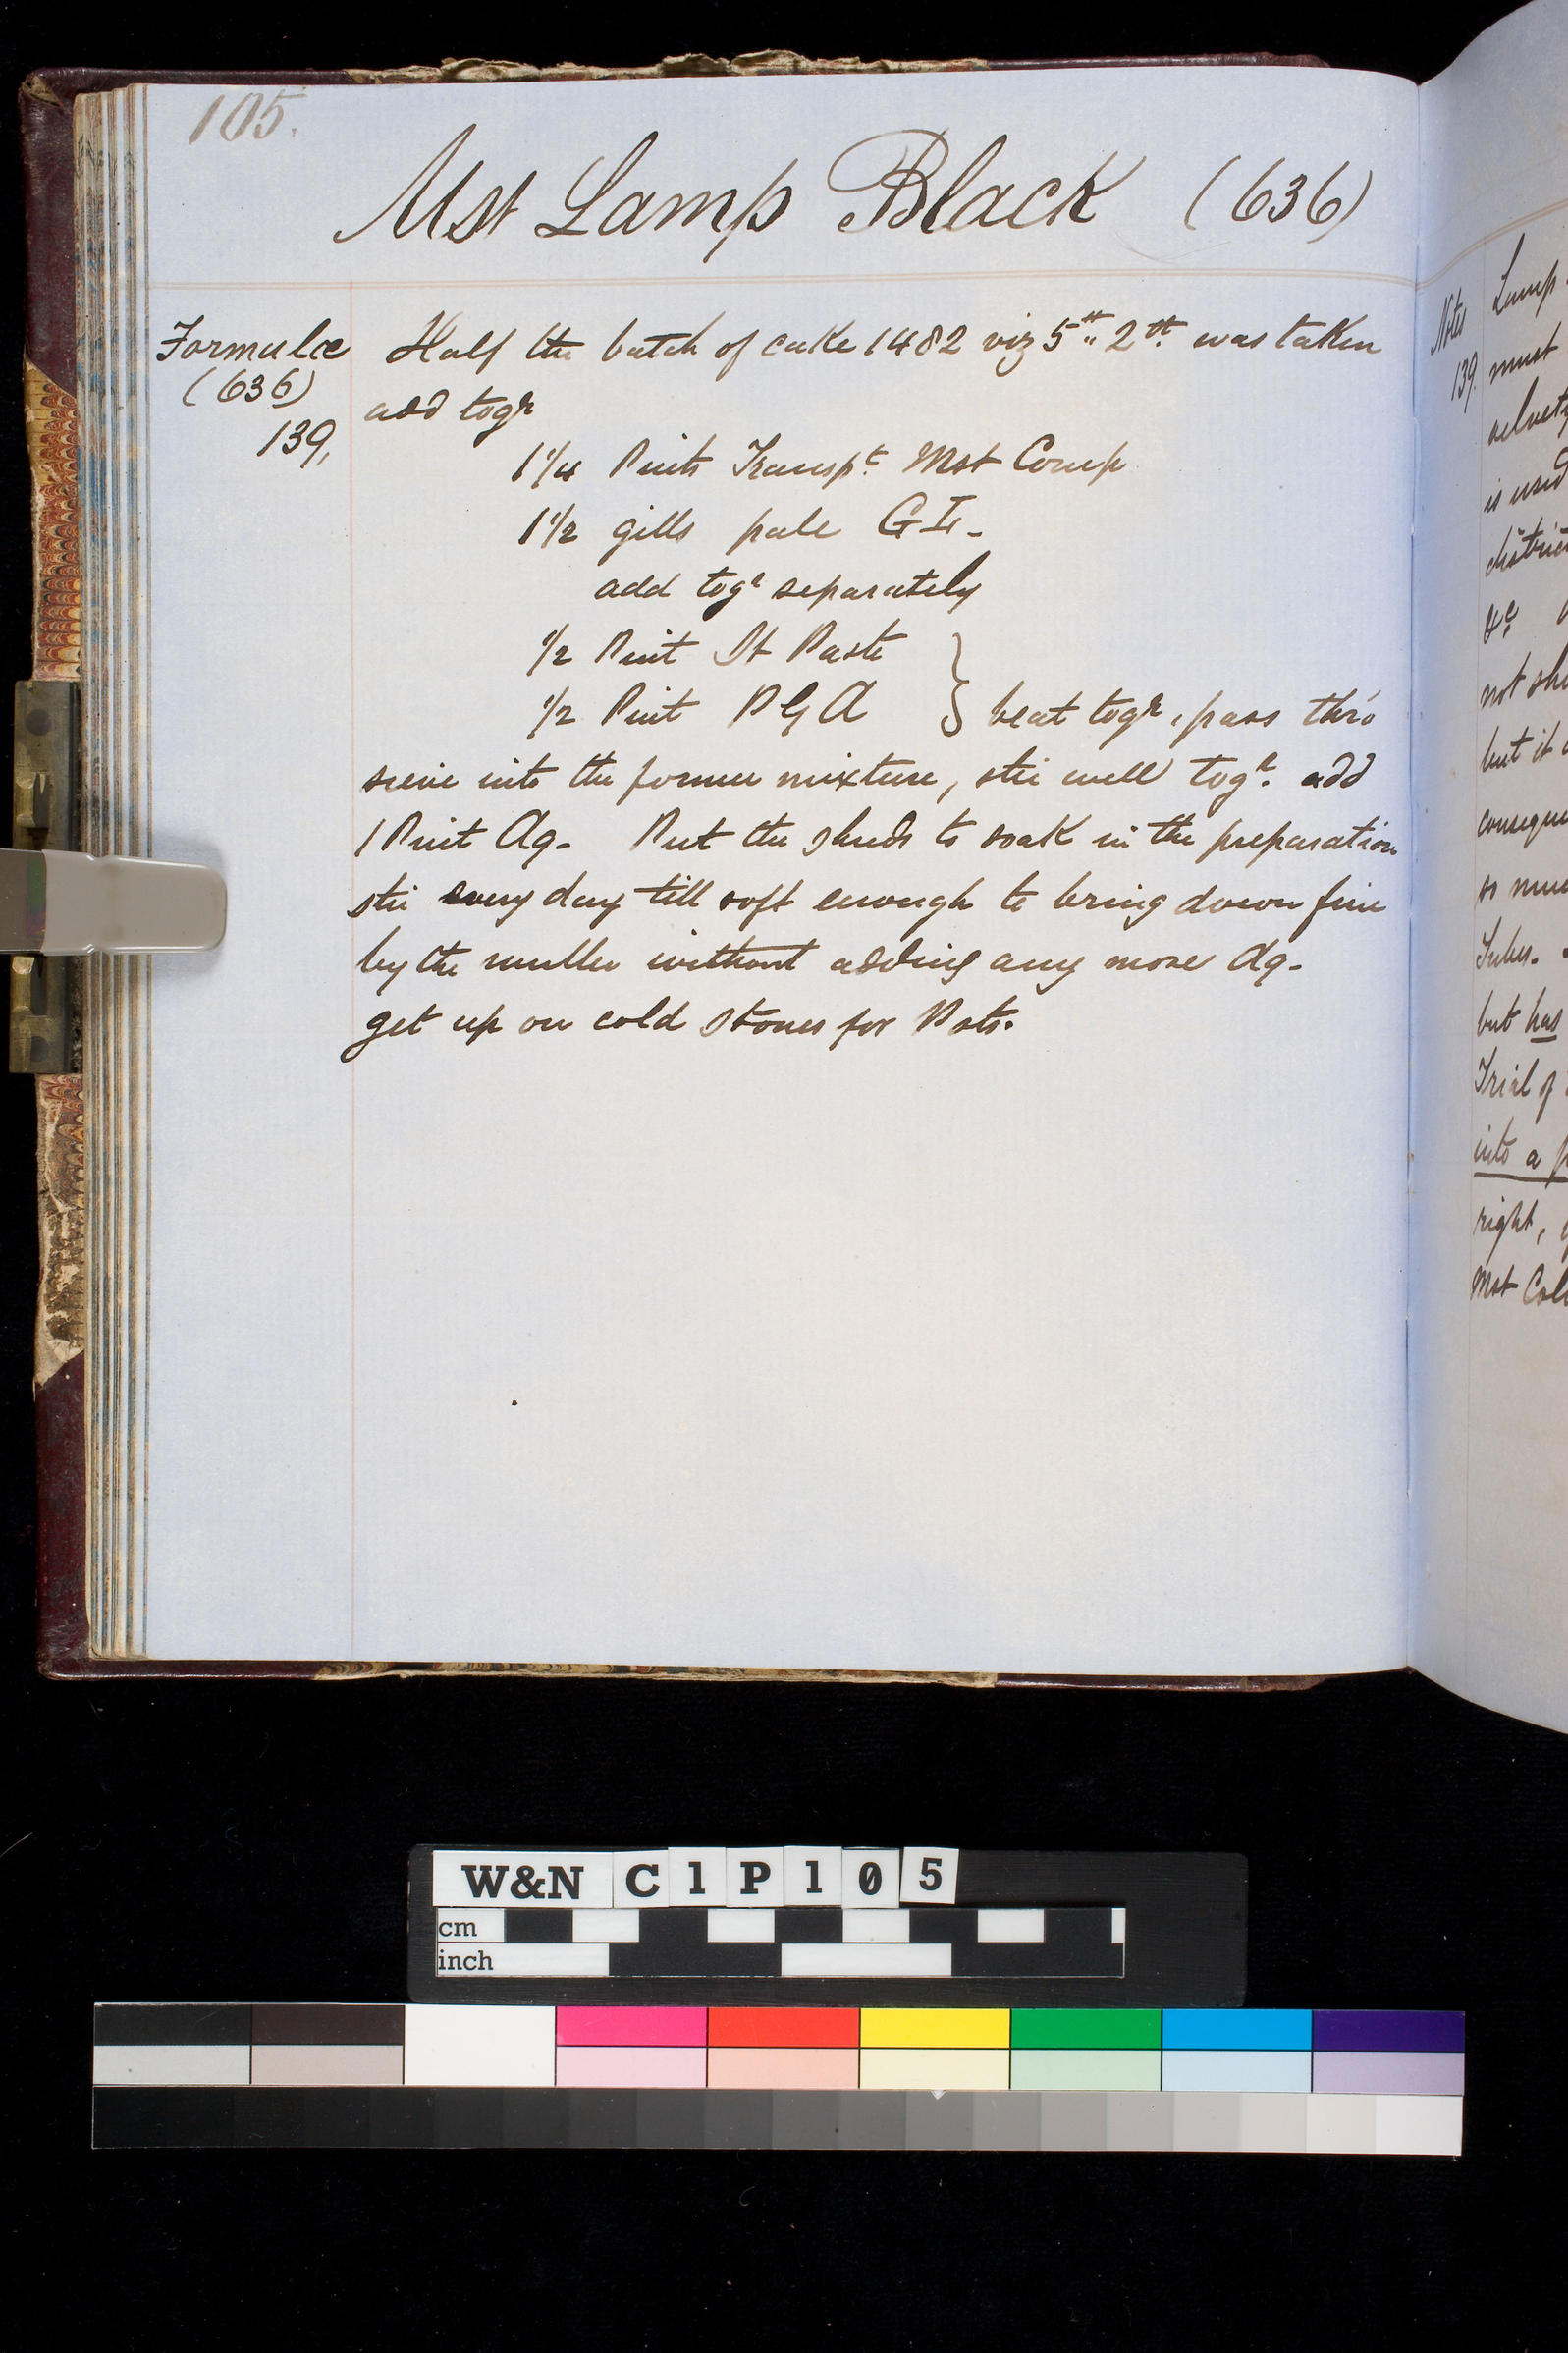 105.
Mst Lamp Black (636)
Formulæ
(636)
139,
Half the batch of cake 1482 viz 5 lb " 2 lb. was taken
add togr
1 1/4 Pints Transpt. Mst Comp
1 1/2 gills pale G I -
add togr separately
1/2 Pint St Paste
1/2 Pint P G A } beat togr, pass thro'
sieve into the former mixture, stir well togr. add
1 Pint Aq - Put the shreds to soak in the preparation
stir every day till soft enough to bring down fine
by the muller without adding any more Aq -
get up on cold stones for Pots.
Notes
139.
Lamp
must
velvety
is used
&c
not
but it
so much
but has
Trial of
into a
right,
Mst
W&N C1P105
cm
inch